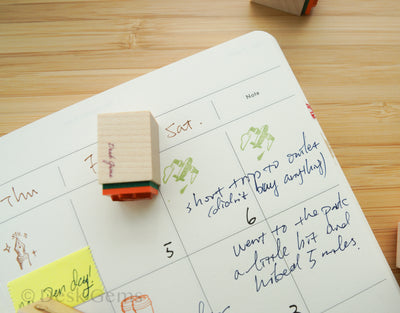 Note
Sat.
F
Thu
Desk Gems
short trip to outlet
(didn't buy anything)
6
5
went to the park
a little bit and
biked 5 miles.
Pen day!
3
DeskGems